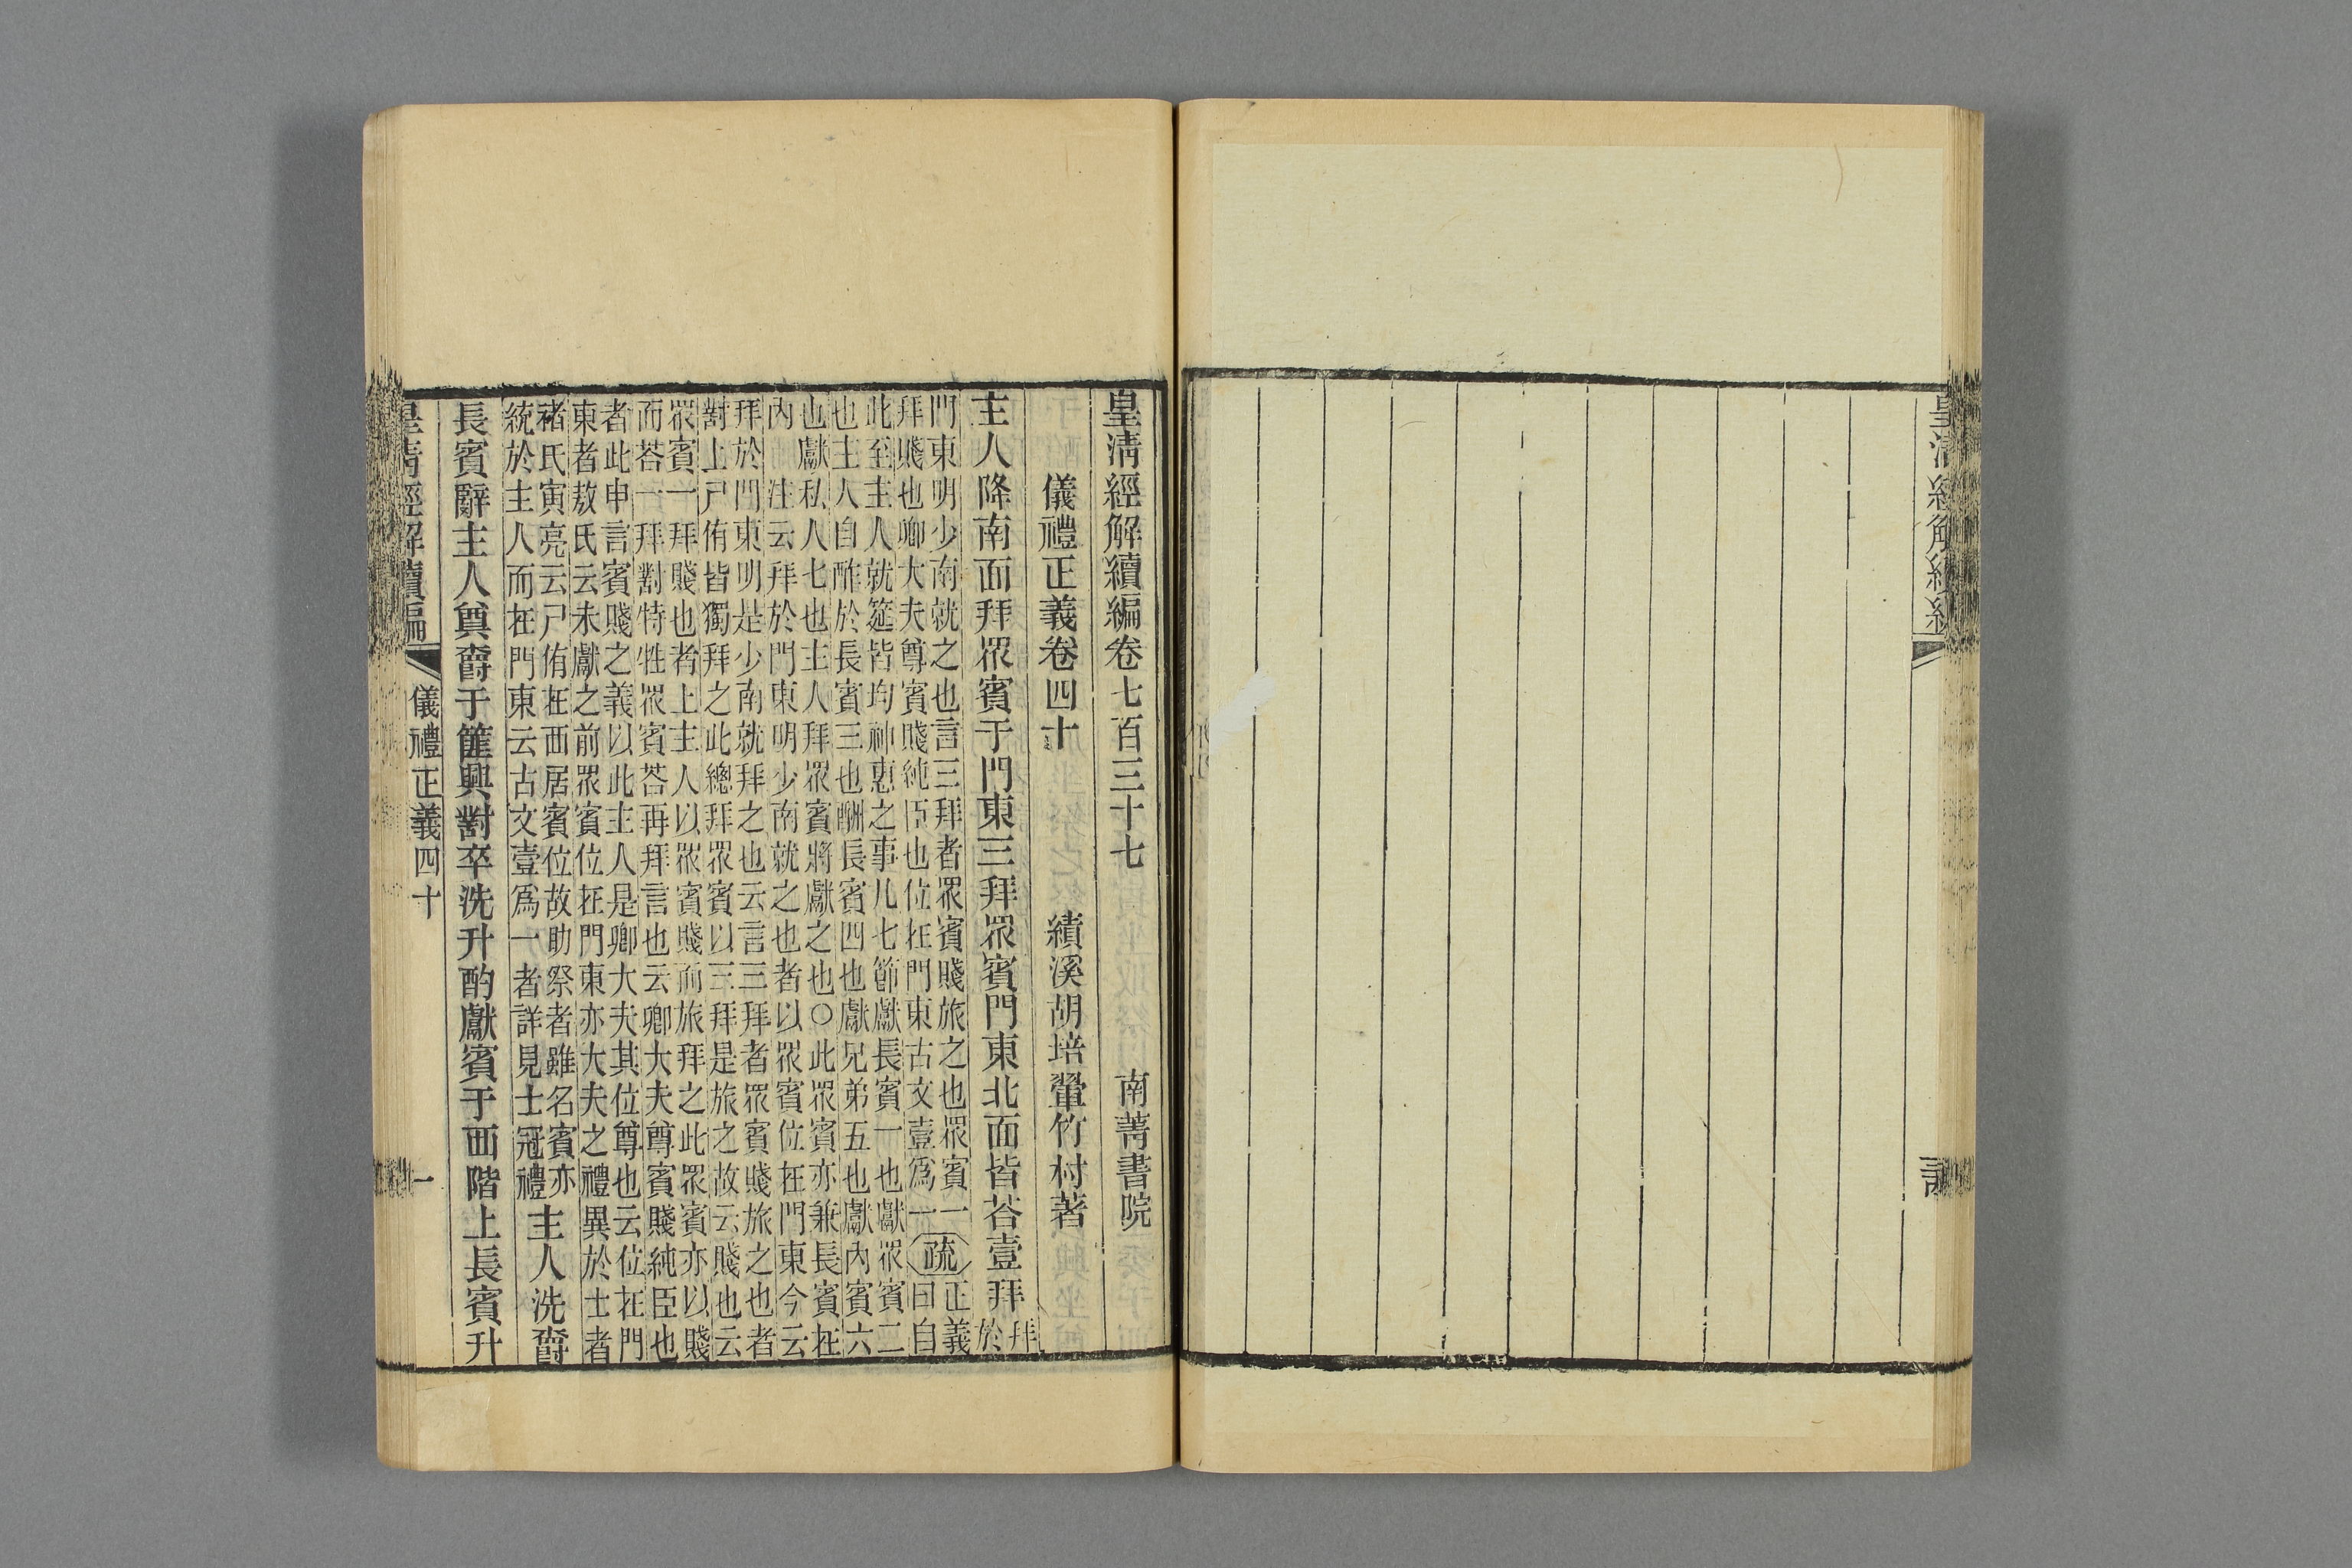 皇清經解續編
皇清經解續編卷七百三十七　南菁書院
儀禮正義卷四十　績溪胡培翬竹村著
主人降南面拜眾賓于門東三拜眾賓門東北面皆荅壹拜拜於
門東明少南就之也言三拜者眾賓賤旅之也眾賓一
拜賤也卿大夫尊賓賤純臣也位在門東古文壹爲一
疏
正義
曰自
此至主人就筵皆均神惠之事凡七節獻長賓一也獻眾賓二
也主人自酢於長賓三也酬長賓四也獻兄弟五也獻內賓六
也獻私人七也主人拜眾賓將獻之也○此眾賓亦兼長賓在
內　注云拜於門東明少南就之也者以眾賓位在門東今云
拜於門東明是少南就拜之也云言三拜者眾賓賤旅之也者
對上尸侑皆獨拜之此總拜眾賓以三拜是旅之故云賤也云
眾賓一拜賤也者上主人以眾賓賤而旅拜之此眾賓亦以賤
而荅一拜對特牲眾賓荅再拜言也云卿大夫尊賓賤純臣也
者此申言賓賤之義以此主人是卿大夫其位尊也云位在門
東者敖氏云未獻之前眾賓位在門東亦大夫之禮異於士者
褚氏寅亮云尸侑在西居賓位故助祭者雖名賓亦
統於主人而在門東云古文壹爲一者詳見士冠禮
主人洗爵
長賓辭主人奠爵于篚興對卒洗升酌獻賓于西階上長賓升
皇清經解續編　儀禮正義四十　一